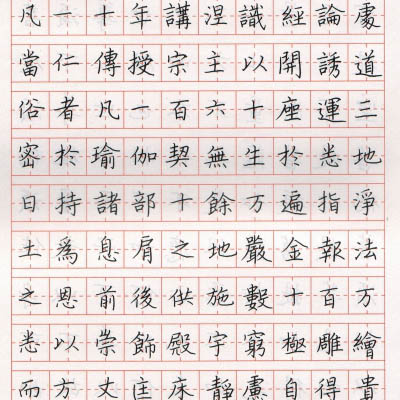 凡一十年講涅識經論處
當仁傳授宗主以開誘道
俗者凡一百六十座運三
密扵瑜伽契無生扵悉地
日持諸部十餘万遍指淨
土爲息肩之地嚴金報法
之恩前後供施數十百万
悉以崇飾殿宇窮極雕繪
而方丈匡床靜慮自得貴